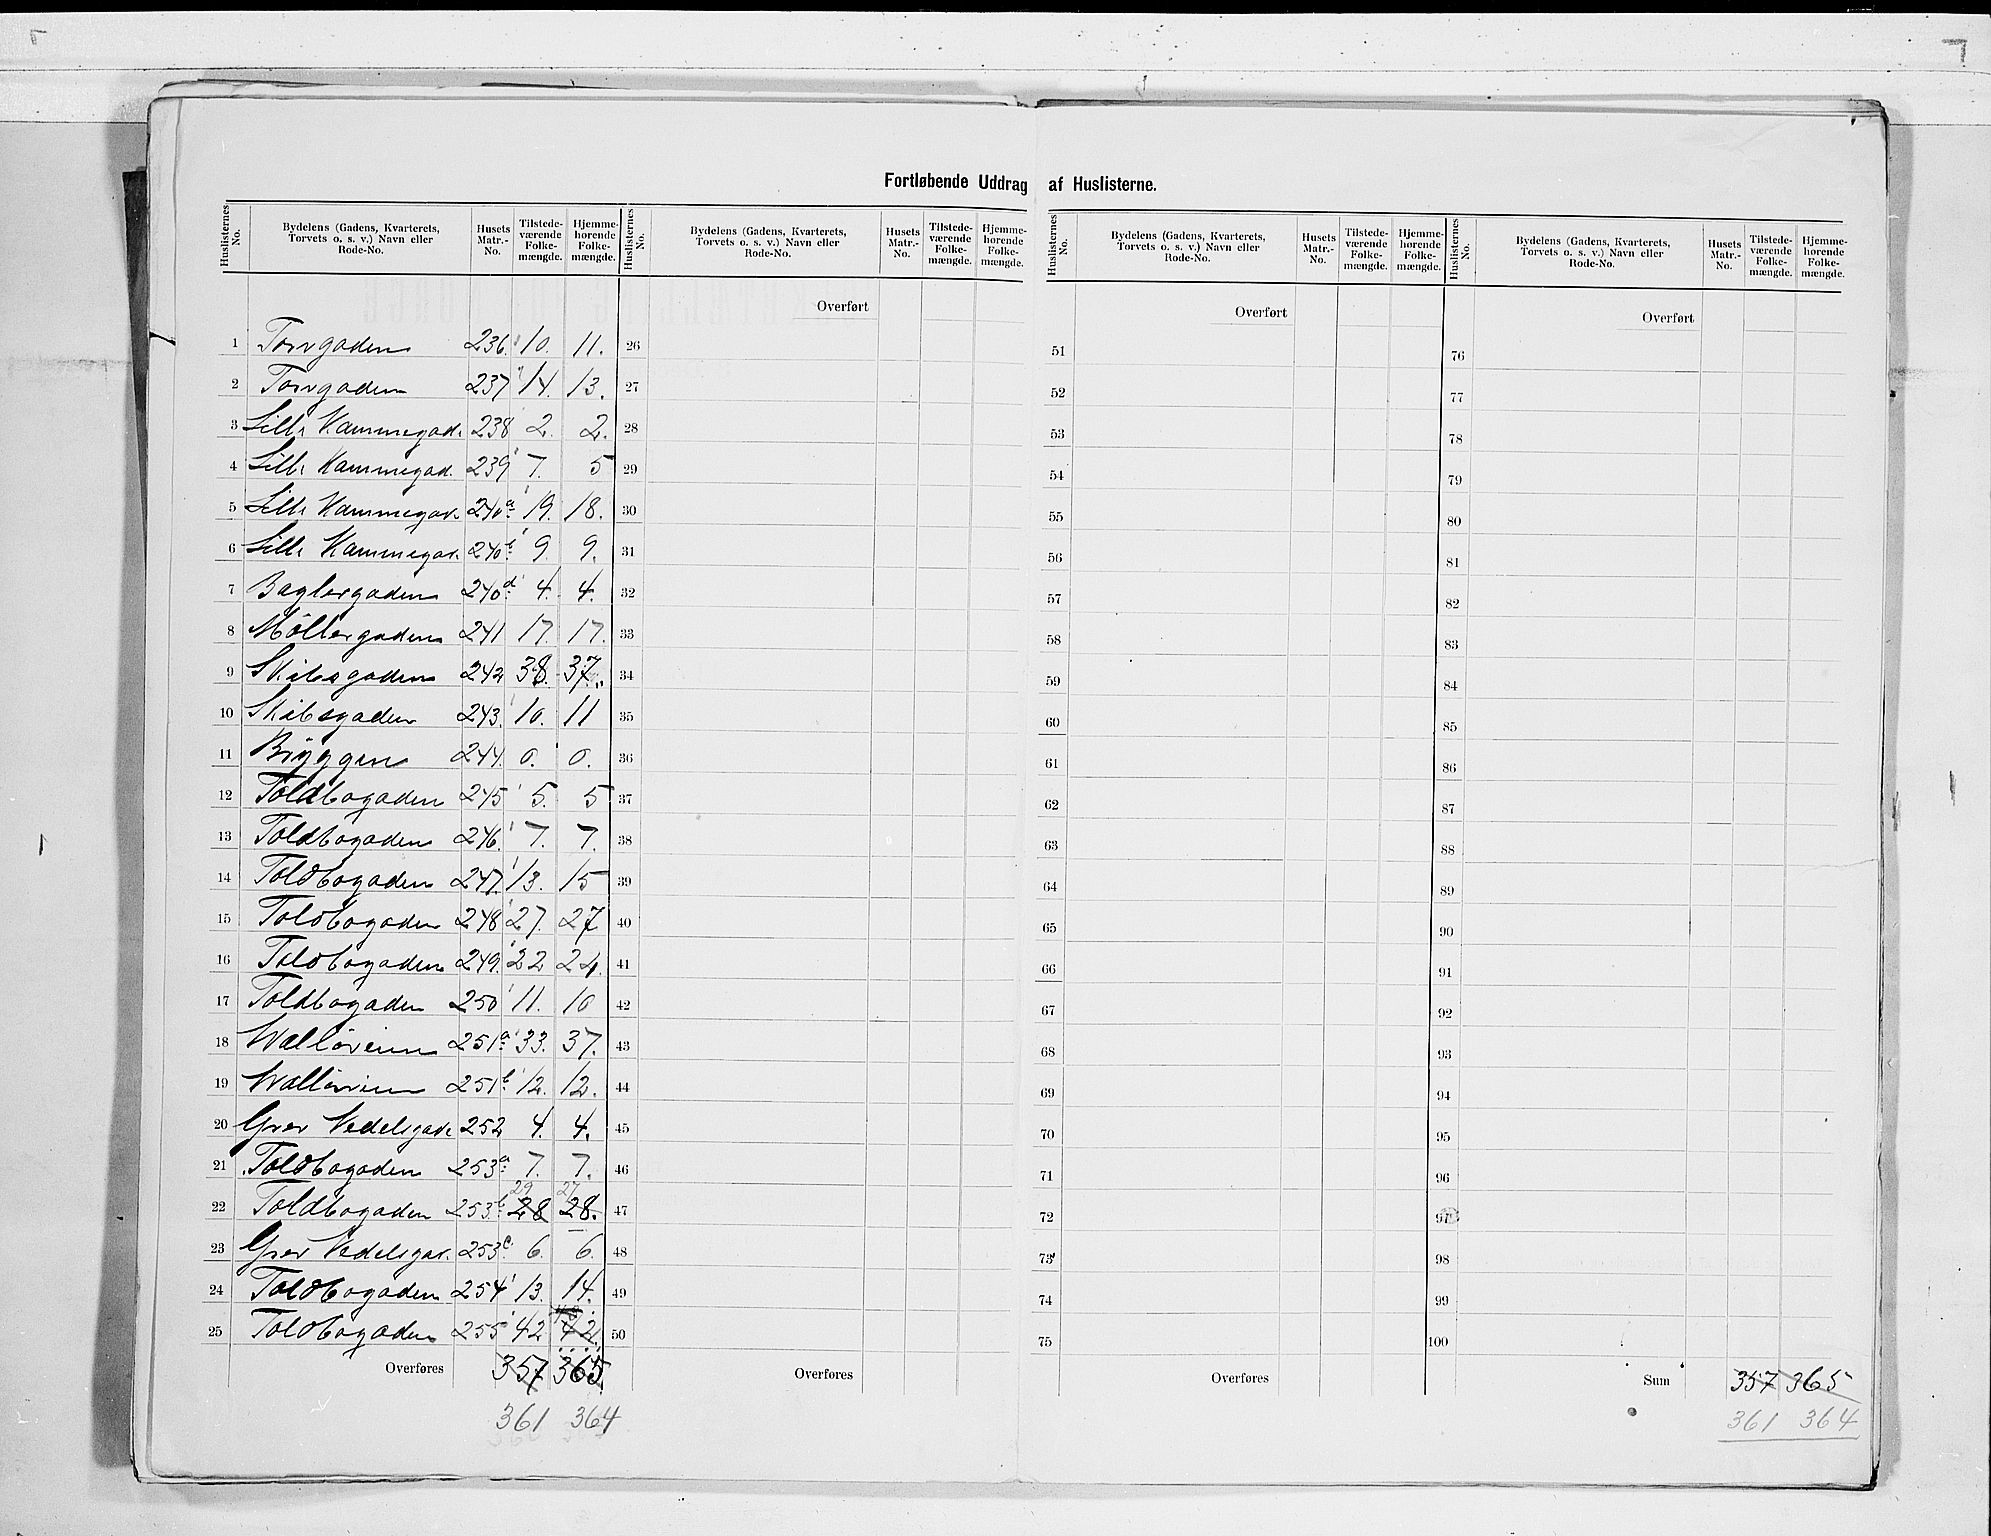 Fortløbende Uddrag af Huslisterne.
Huslisternes No. | Bydelens (Gadens, Kvarterets, Torvets o. s. v.) Navn eller Rode-No. | Husets Matr.-No. | Tilstedeværende Folkemængde. | Hjemmehørende Folkemængde.
Huslisternes No. | Bydelens (Gadens, Kvarterets, Torvets o. s. v.) Navn eller Rode-No. | Husets Matr.-No. | Tilstedeværende Folkemængde. | Hjemmehørende Folkemængde.
Huslisternes No. | Bydelens (Gadens, Kvarterets, Torvets o. s. v.) Navn eller Rode-No. | Husets Matr.-No. | Tilstedeværende Folkemængde. | Hjemmehørende Folkemængde.
Huslisternes No. | Bydelens (Gadens, Kvarterets, Torvets o. s. v.) Navn eller Rode-No. | Husets Matr.-No. | Tilstedeværende Folkemængde. | Hjemmehørende Folkemængde.
Overført Overført Overført
1 Torvgaden 236. 10. 11. 26 51 76
2 Torvgaden 237 14. 13. 27 52 77
3 Lille Kammegad. 238 2. 2. 28 53 78
4 Lille Kammegad. 239 7. 5 29 54 79
5 Lille Kammegad. 240a 19. 18. 30 55 80
6 Lille Kammegad. 240b 9. 9. 31 56 81
7 Baglergaden 240d 4. 4. 32 57 82
8 Møllergaden 241 17. 17. 33 58 83
9 Skibsgaden 242 38. 37. 34 59 84
10 Skibsgaden 243. 10. 11 35 60 85
11 Bryggen 244. 0. 0. 36 61 86
12 Toldbogaden 245 5. 5 37 62 87
13 Toldbogaden 246. 7. 7. 38 63 88
14 Toldbogaden 247. 13. 15 39 64 89
15 Toldbogaden 248 27. 27 40 65 90
16 Toldbogaden 249. 22 24. 41 66 91
17 Toldbogaden 250 11. 10 42 67 92
18 Walløveien 251a 33. 37. 43 68 93
19 Walløveien 251b 12. 12. 44 69 94
20 Grev Vedelsgade 252 4. 4. 45 70 95
21 Toldbogaden 253a 7. 7. 46 71 96
29 27
22 Toldbogaden 253b 28 28. 47 72 97
23 Grev Vedelsgad. 253c 6. 6. 48 73 98
24 Toldbogaden 254 13. 14. 49 74 99
25 Toldbogaden 255 42 42. 50 75 100
Overføres 357 365 Overføres Overføres Sum 357 365
361 364 361 364